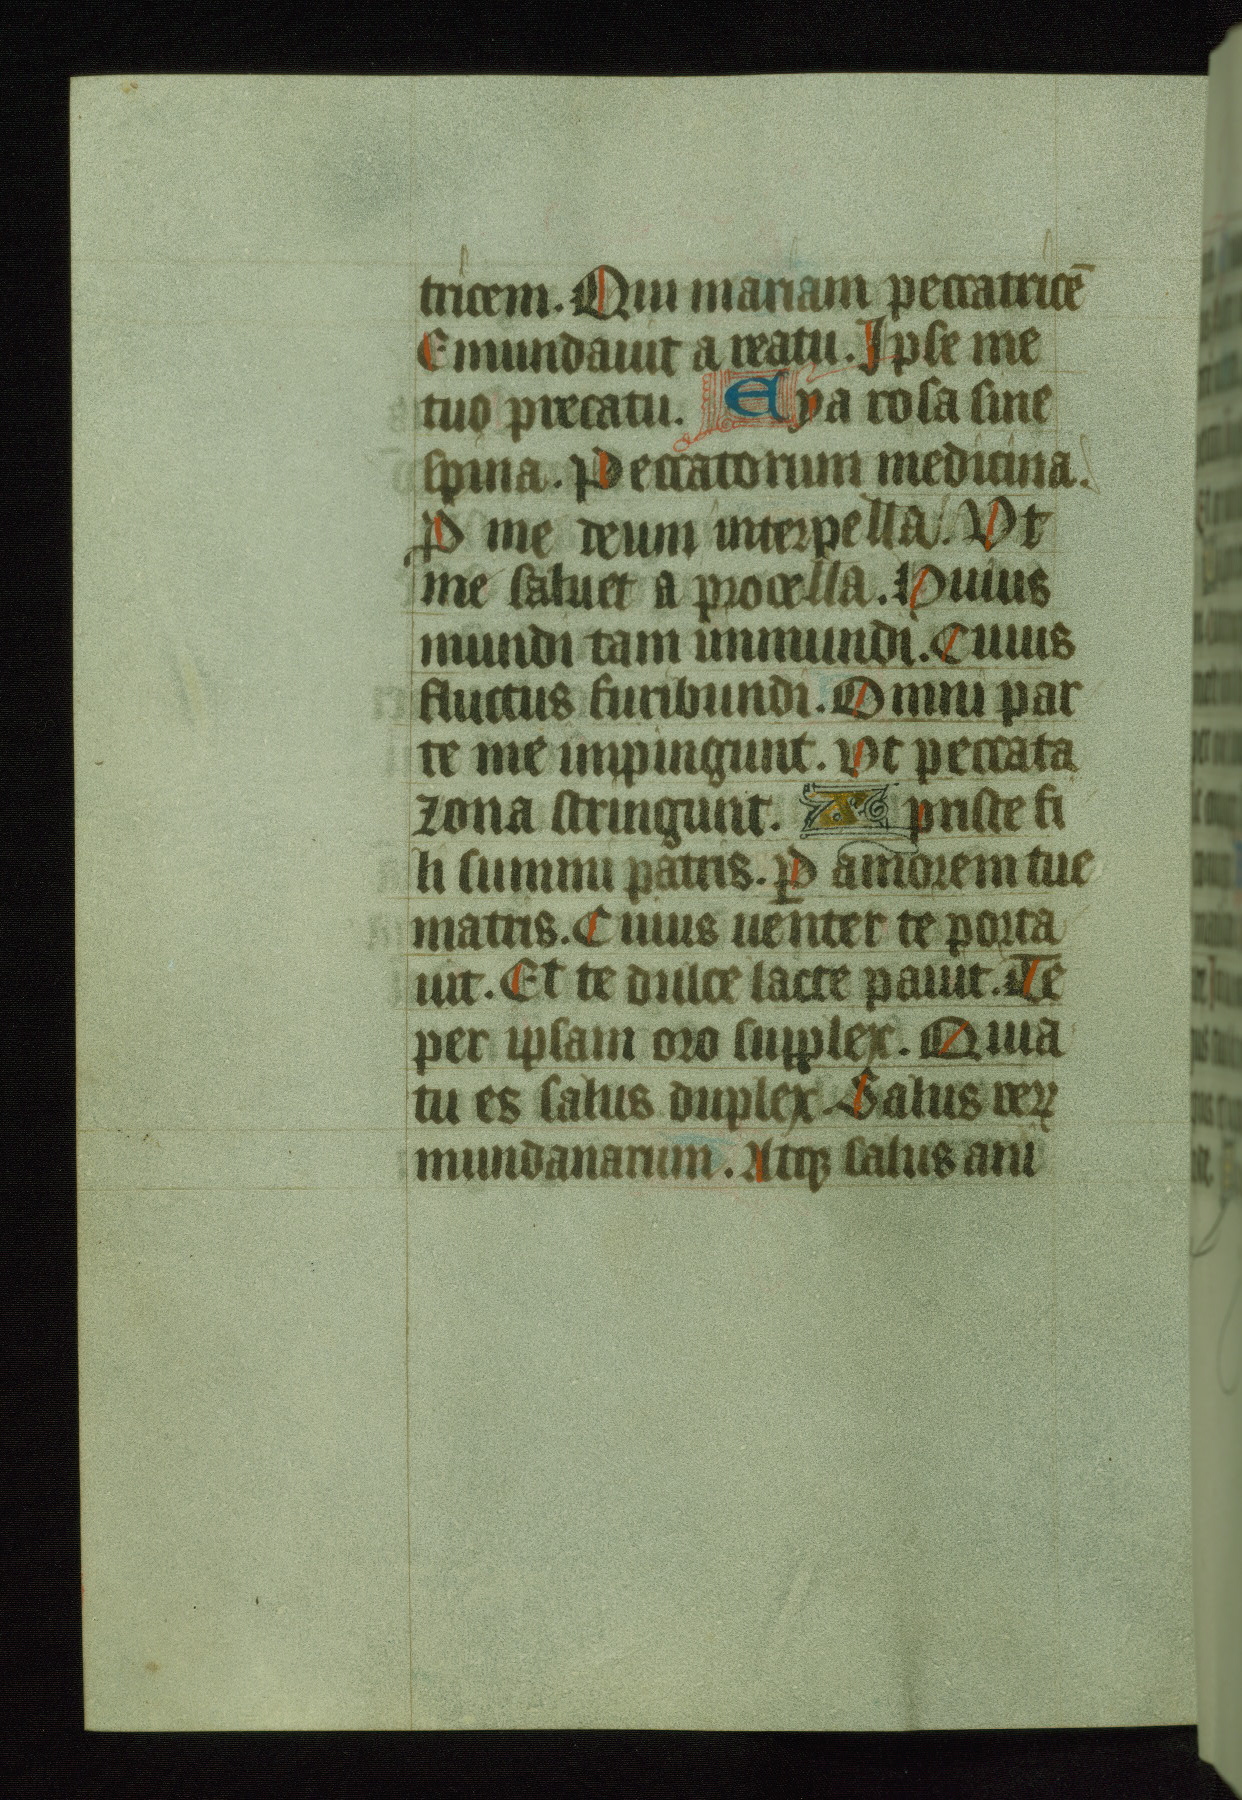 tricem. Qui mariam peccatricē
Emundauit a reatu. Ipse me
tuo precatu. Eya rosa sine
spina. Peccatorum medicina.
ꝑ me deum interpella. Vt
me saluet a procella. Huius
mundi tam immundi. Cuius
fluctus furibundi. Omni par
te me impingunt. Vt peccata
zona stringunt. Xpriste fi
li summi patris. ꝑ amorem tue
matris. Cuius uenter te porta
uit. Et te dulce lacte pauit. Te
per ipsam oro supplex. Quia
tu es salus duplex. Salus rerꝝ
mundanarum. Atqꝫ salus ani